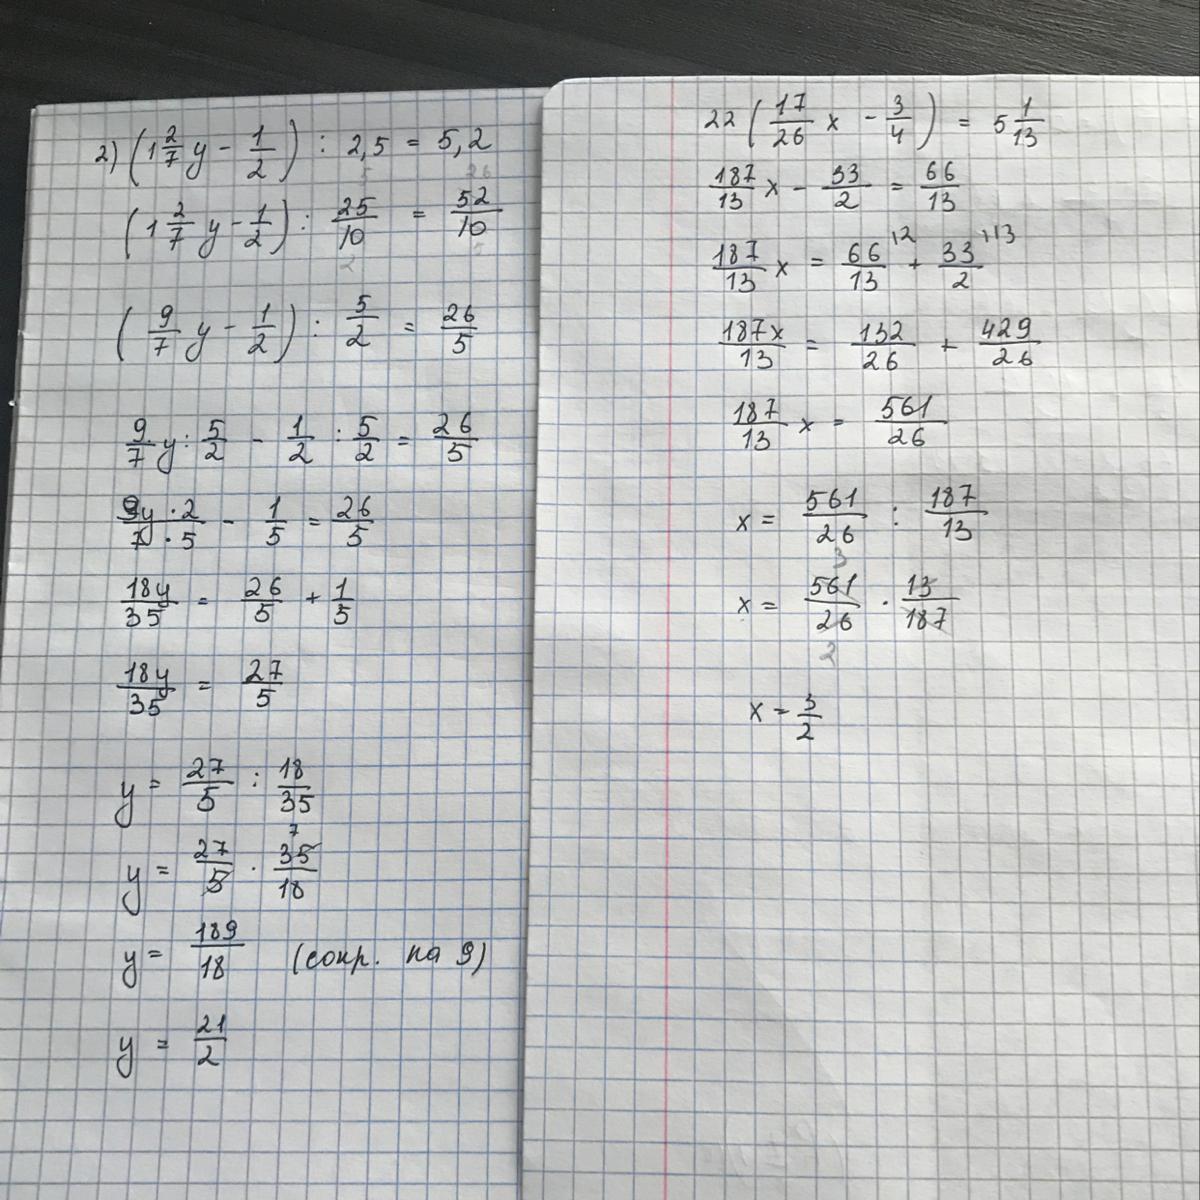 2) (1 2/7 y - 1/2) : 2,5 = 5,2
(1 2/7 y - 1/2) : 25/10 = 52/10
5 26
2 5
(9/7 y - 1/2) : 5/2 = 26/5
9/7 y : 5/2 - 1/2 : 5/2 = 26/5
9y · 2 / 7 · 5 - 1/5 = 26/5
18y/35 = 26/5 + 1/5
18y/35 = 27/5
y = 27/5 : 18/35
y = 27/5 · 35/18
7
y = 189/18 (сокр. на 9)
y = 21/2
22 (17/26 x - 3/4) = 5 1/13
187/13 x - 33/2 = 66/13
187/13 x = 66/13 + 33/2
187x/13 = 132/26 + 429/26
187/13 x = 561/26
x = 561/26 : 187/13
x = 561/26 · 13/187
3
2
x = 3/2